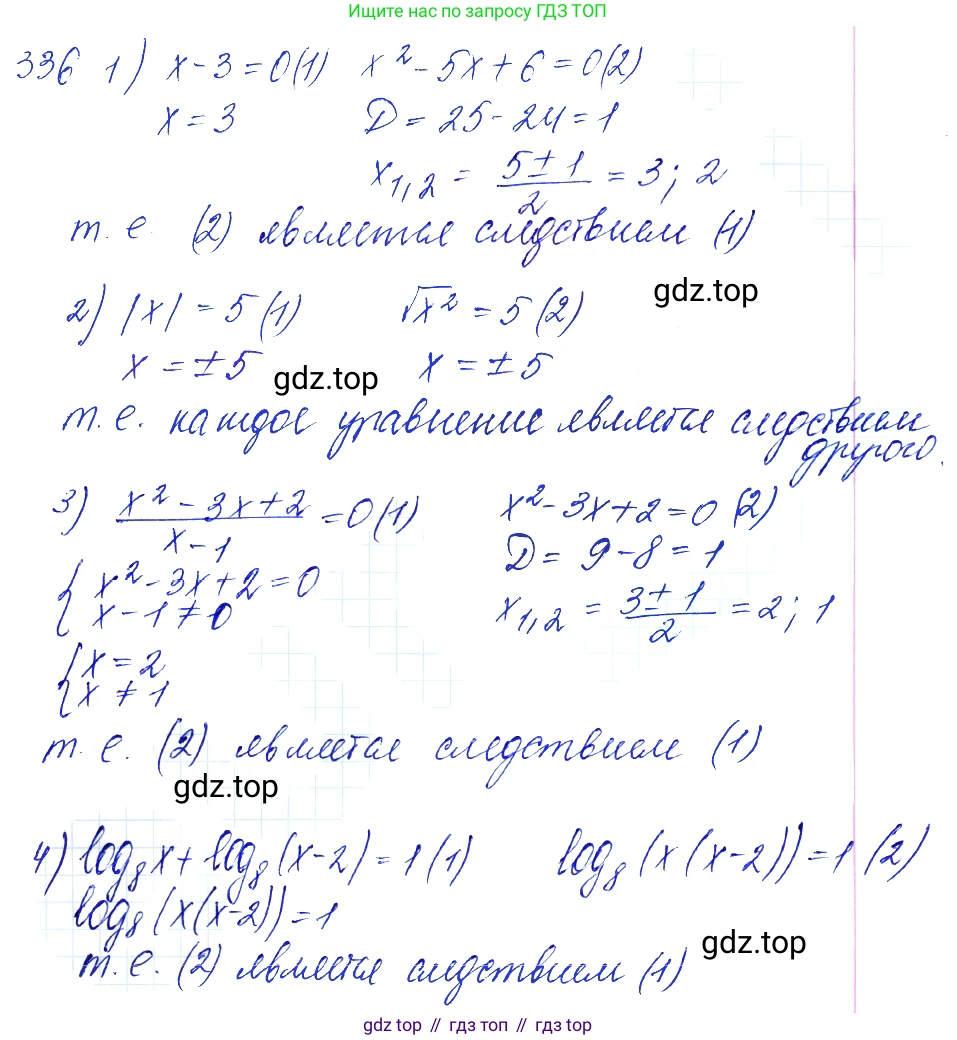 Ищите нас по запросу ГДЗ ТОП
336 1) x - 3 = 0 (1) x² - 5x + 6 = 0 (2)
x = 3 D = 25 - 24 = 1
x₁,₂ = (5 ± 1)/2 = 3; 2
т. е. (2) является следствием (1)
gdz.top
2) |x| = 5 (1) √x² = 5 (2)
x = ±5 x = ±5
gdz.top
т. е. каждое уравнение является следствием
другого.
3) (x² - 3x + 2)/(x - 1) = 0 (1) x² - 3x + 2 = 0 (2)
D = 9 - 8 = 1
{ x² - 3x + 2 = 0
x - 1 ≠ 0 x₁,₂ = (3 ± 1)/2 = 2; 1
{ x = 2
x ≠ 1
т. е. (2) является следствием (1)
gdz.top
4) log₈ x + log₈ (x - 2) = 1 (1) log₈ (x (x - 2)) = 1 (2)
log₈ (x(x - 2)) = 1
т. е. (2) является следствием (1)
gdz.top
gdz top // гдз топ // gdz top